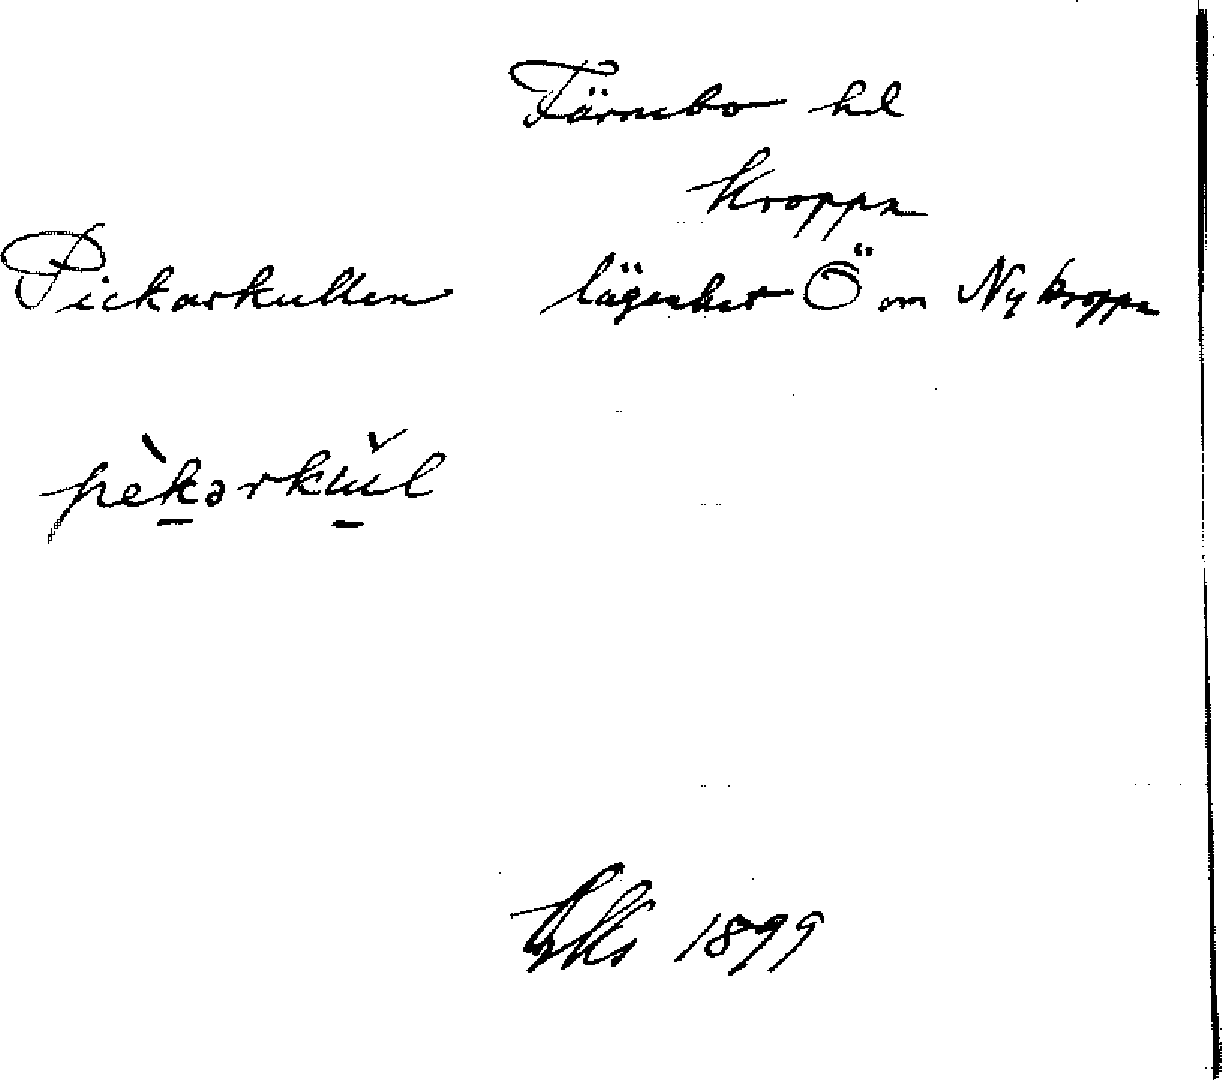 Färnebo hd
Kroppa
Pickarkullen lägenhet Ö om Nykroppa
pèkarkul
1899